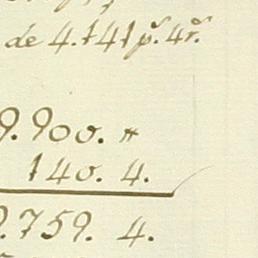 de 4.141 p.s 4 r.s
9.900. "
140. 4.
9.759. 4.